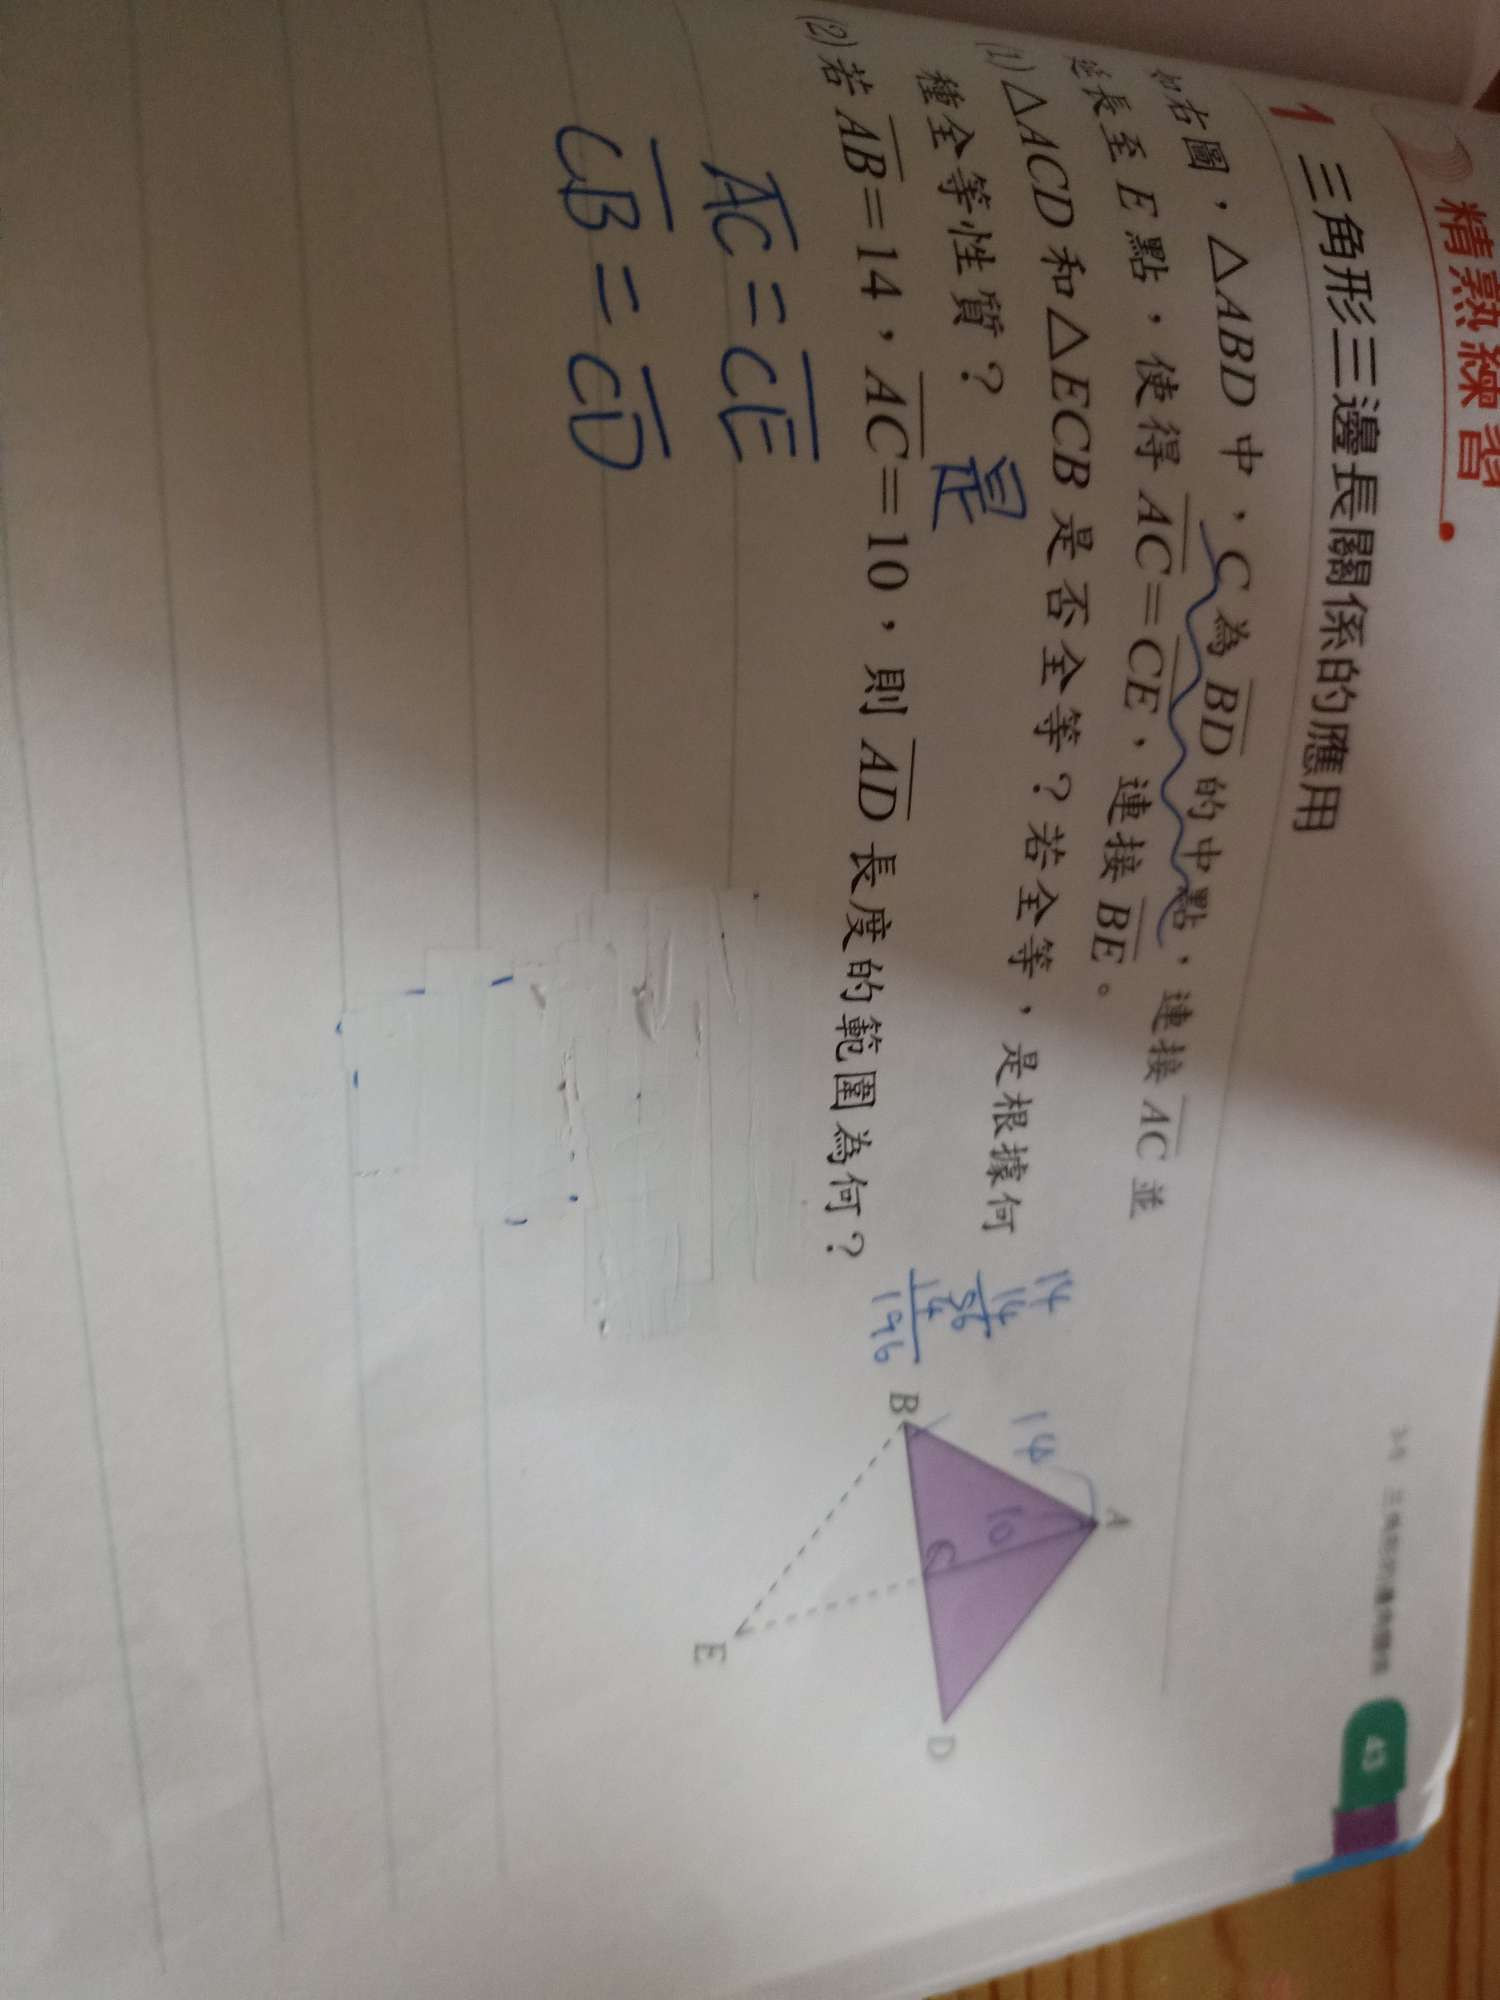 精熟練習
1 三角形三邊長關係的應用
如右圖，△ABD 中，C 為 BD 的中點，連接 AC 並
延長至 E 點，使得 AC=CE，連接 BE。
(1) △ACD 和 △ECB 是否全等？若全等，是根據何
種全等性質？ 是
(2) 若 AB=14，AC=10，則 AD 長度的範圍為何？
AC=CE
CB=CD
14
14
56
14
196
A
14
10
B
C
D
E
43